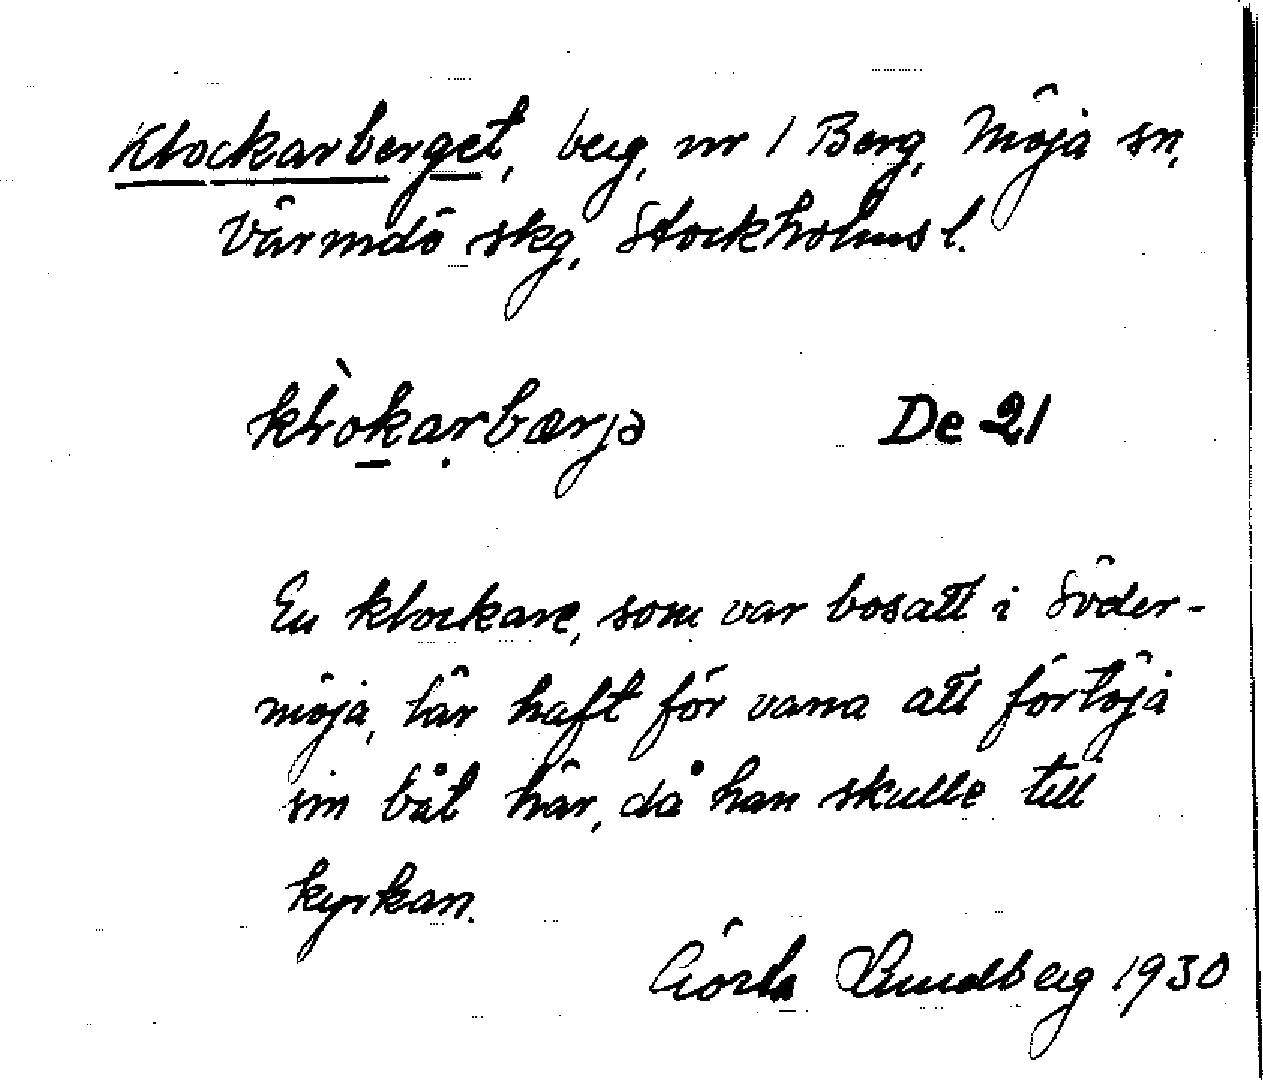 Klockarberget, berg, nr 1 Berg, Möja sn,
Värmdö skg, Stockholms l.
klòkarbærjə De 21
En klockare, som var bosatt i Söder-
möja, lär haft för vana att förtöja
sin båt här, då han skulle till
kyrkan.
Gösta Lundberg 1930